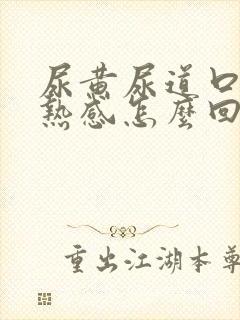 尿黄尿道口
热感怎麼回
重出江湖本尊